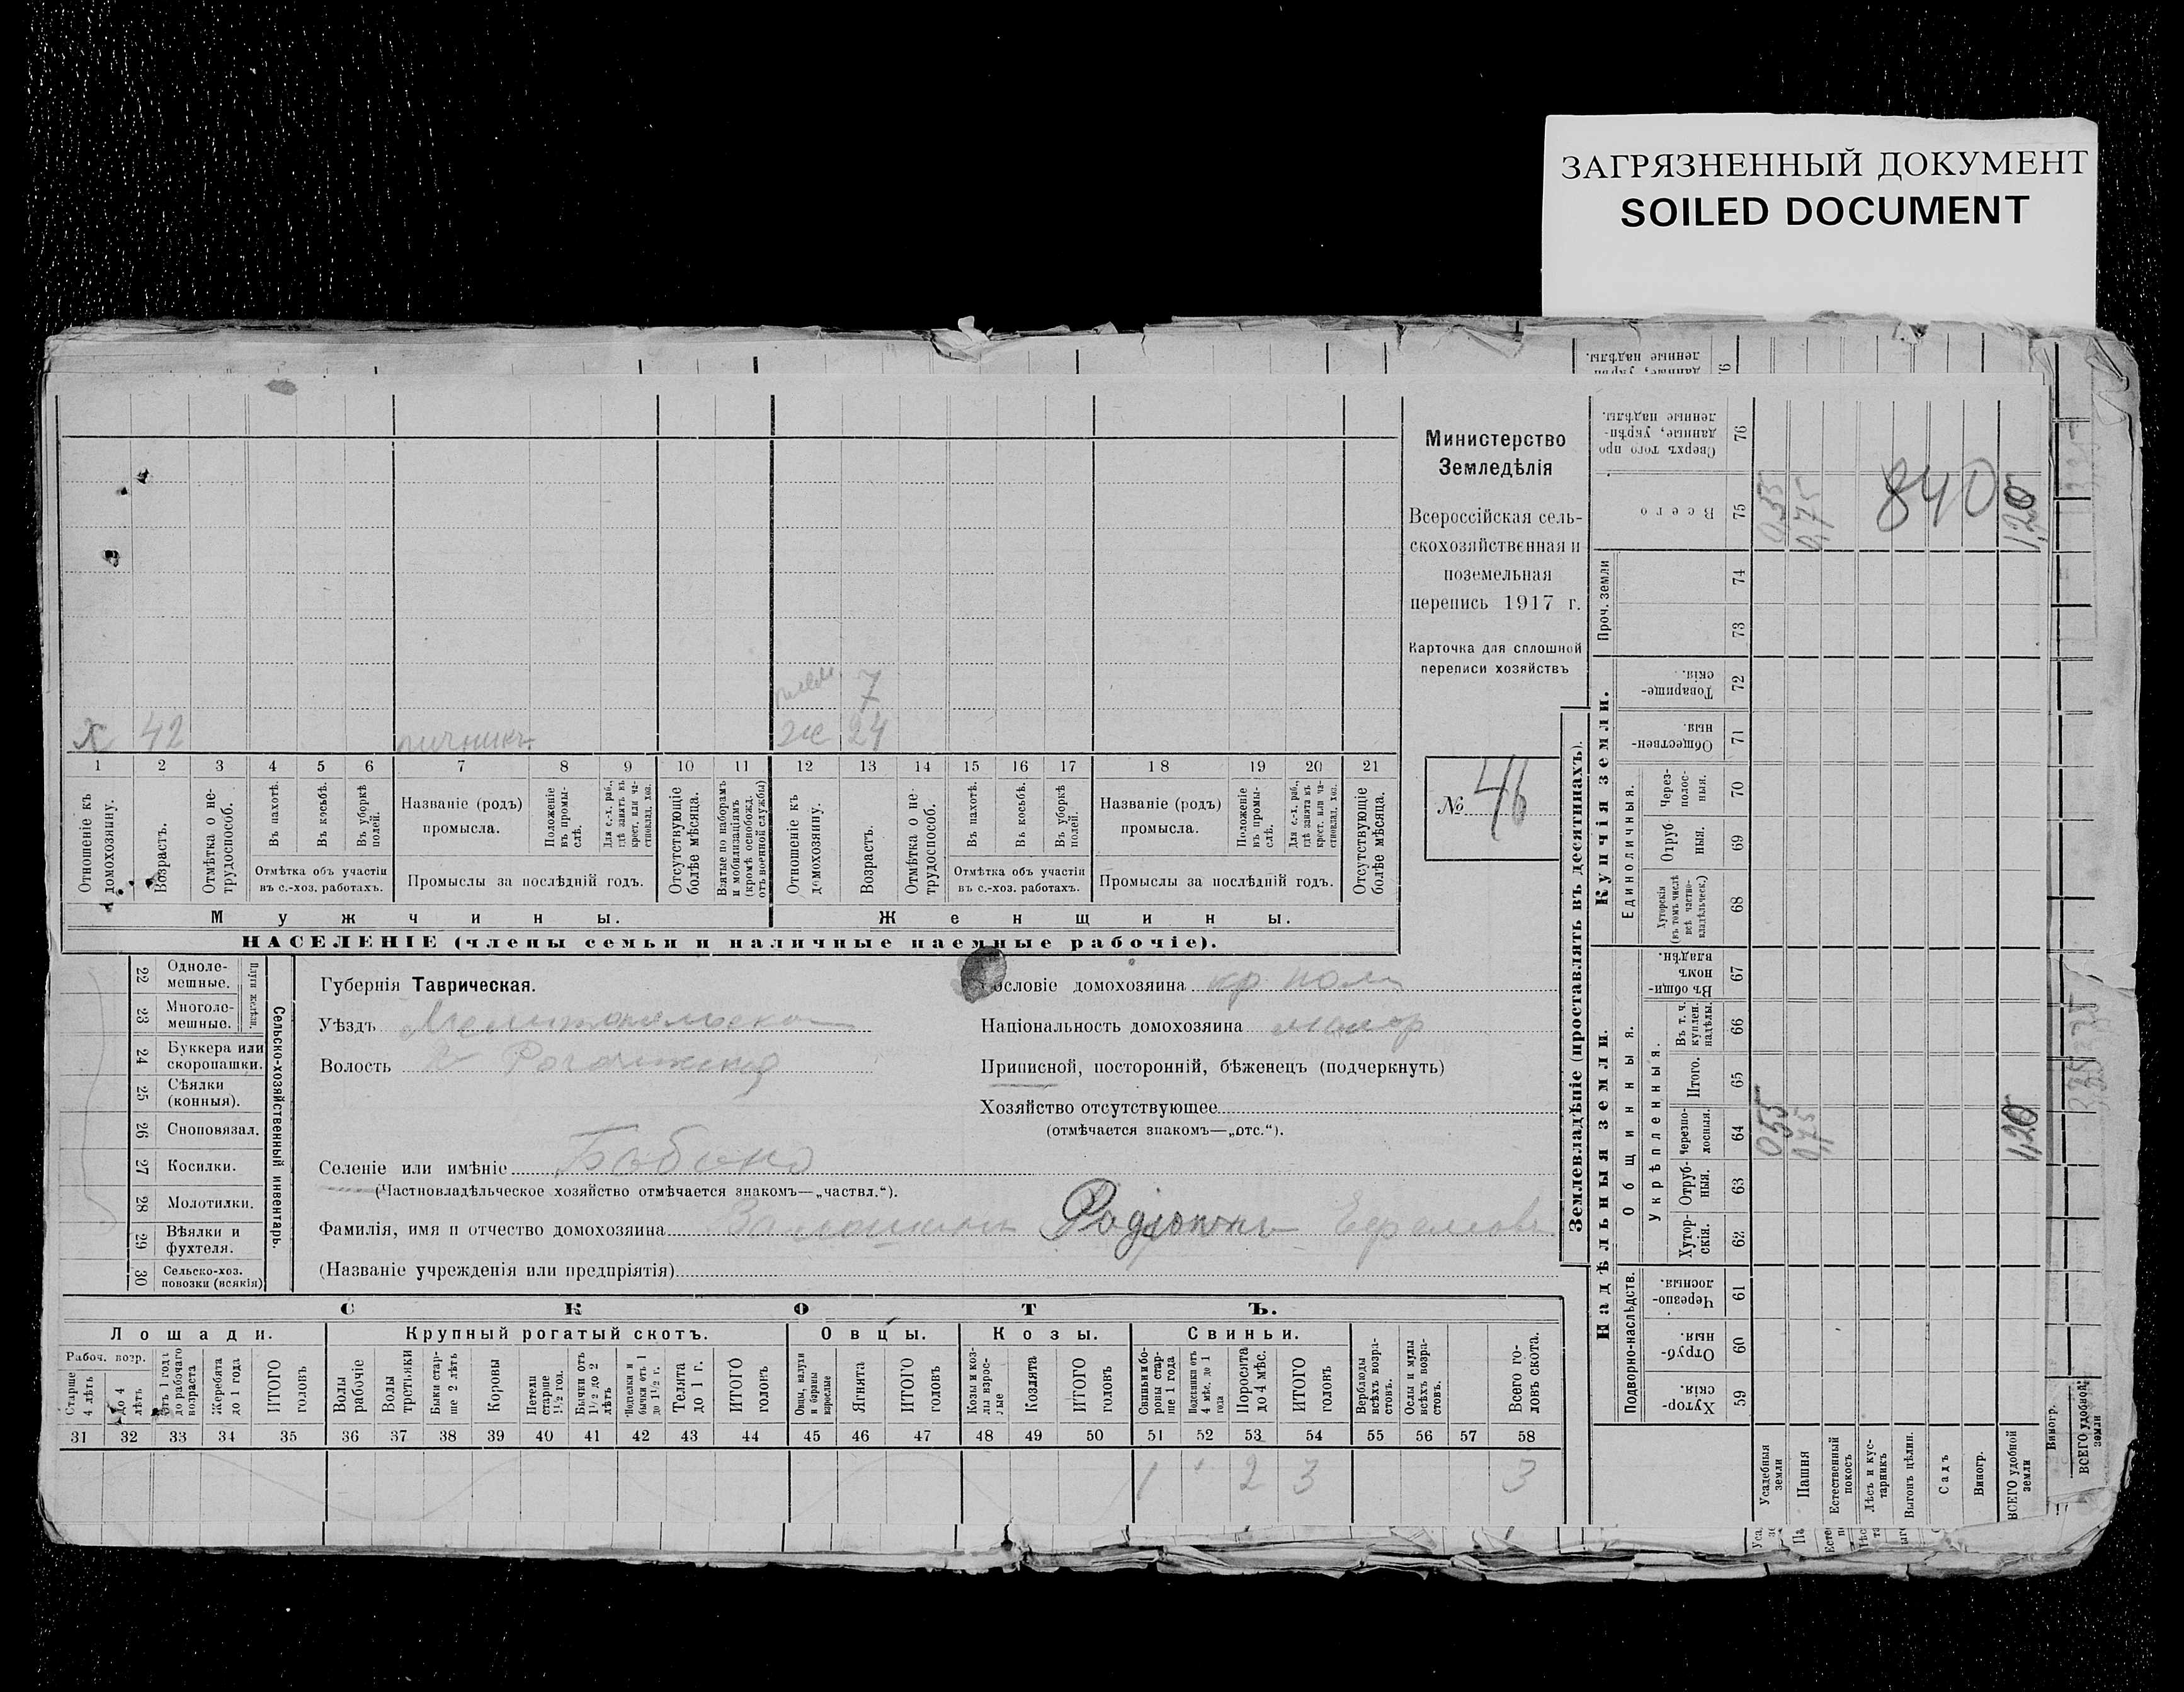 ЗАГРЯЗНЕННЫЙ ДОКУМЕНТ
SOILED DOCUMENT
Министерство
Земледѣлія
Всероссійская сель-
скохозяйственная и
поземельная
перепись 1917 г.
Карточка для сплошной
переписи хозяйствъ
№ 46
7
х 42 ж 24
1 2 3 4 5 6 7 8 9 10 11 12 13 14 15 16 17 18 19 20 21
Отношеніе къ домохозяину.
Возрастъ.
Отмѣтка о не-трудоспособ.
Въ пахотѣ.
Въ косьбѣ.
Въ уборкѣ полей.
Отмѣтка объ участіи
въ с.-хоз. работахъ.
Названіе (родъ)
промысла.
Положеніе въ промы-слѣ.
Для с.-х. раб., гдѣ занятъ въ крест. или ча-стновлад. хоз.
Промыслы за послѣдній годъ.
Отсутствующіе болѣе мѣсяца.
Взятые по наборамъ и мобилизаціямъ (кромѣ освобожд. отъ военной службы)
Отношеніе къ домохозяину.
Возрастъ.
Отмѣтка о не-трудоспособ.
Въ пахотѣ.
Въ косьбѣ.
Въ уборкѣ полей.
Отмѣтка объ участіи
въ с.-хоз. работахъ.
Названіе (родъ)
промысла.
Положеніе въ промы-слѣ.
Для с.-х. раб., гдѣ занята въ крест. или ча-стновлад. хоз.
Промыслы за послѣдній годъ.
Отсутствующіе болѣе мѣсяца.
Мужчины. Женщины.
НАСЕЛЕНІЕ (члены семьи и наличные наемные рабочіе).
Сельско-хозяйственный инвентарь.
Плуги желѣзн.
22 Одноле-мешные.
23 Многоле-мешные.
24 Буккера или скоропашки.
25 Сѣялки (конныя).
26 Сноповязал.
27 Косилки.
28 Молотилки.
29 Вѣялки и фухтеля.
30 Сельско-хоз. повозки (всякія)
Губернія Таврическая.
Уѣздъ
Волость
Селеніе или имѣніе
(Частновладѣльческое хозяйство отмѣчается знакомъ—„частвл.“).
Фамилія, имя и отчество домохозяина Родіонъ
(Названіе учрежденія или предпріятія)
ословіе домохозяина кр
Національность домохозяина малор
Приписной, посторонній, бѣженецъ (подчеркнуть)
Хозяйство отсутствующее
(отмѣчается знакомъ—„отс.“).
СКОТЪ.
Лошади. Крупный рогатый скотъ. Овцы. Козы. Свиньи.
Рабоч. возр.
Старше 4 лѣтъ
до 4 лѣтъ
Отъ 1 года до рабочаго возраста
Жеребята до 1 года
ИТОГО головъ
Волы рабочіе
Волы третьяки
Быки стар-ше 2 лѣтъ
Коровы
Нетели старше 1½ год.
Бычки отъ 1½ до 2 лѣтъ
Подтелки и бычки отъ 1 до 1½ г.
Телята до 1 г.
ИТОГО головъ
Овцы, валухи и бараны взрослые
Ягнята
ИТОГО головъ
Козы и коз-лы взрос-лые
Козлята
ИТОГО головъ
Свиньи и бо-ровы стар-ше 1 года
Подсвинки отъ 4 мѣс. до 1 года
Поросята до 4 мѣс.
ИТОГО головъ
Верблюды всѣхъ возра-стовъ.
Ослы и мулы всѣхъ возра-стовъ.
Всего го-ловъ скота.
31 32 33 34 35 36 37 38 39 40 41 42 43 44 45 46 47 48 49 50 51 52 53 54 55 56 57 58
1 2 3 3
Землевладѣніе (проставлять въ десятинахъ).
Надѣльныя земли. Купчія земли.
Подворно-наслѣдств.
Общинныя.
Укрѣпленныя.
Единоличныя.
Проч. земли
Хутор-скія. 59
Отруб-ныя. 60
Черезпо-лосныя. 61
Хутор-скія. 62
Отруб-ныя. 63
Черезпо-лосныя. 64
Итого. 65
Въ т. ч. куплен. надѣлы. 66
Въ общи-номъ владѣн. 67
Хуторскія (въ томъ числѣ всѣ частно-владѣльческ.) 68
Отруб-ныя. 69
Через-полос-ныя. 70
Обществен-ныя 71
Товарище-скія. 72
73
74
Всего 75
Сверхъ того про-данные, укрѣп-ленные надѣлы. 76
Усадебныя земли 0,55 0,55
Пашня
Естественный покосъ
Лѣсъ и кус-тарникъ
Выгонъ цѣлин.
Садъ
Виногр.
ВСЕГО удобной земли 1,20 1,20
840
Виногр.
ВСЕГО удобной земли